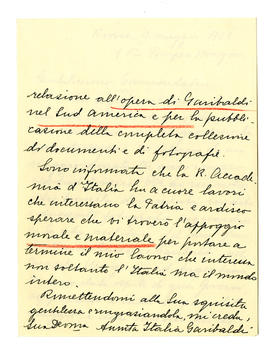 relazione all'opera di Garibaldi
nel Sud America e per la pubbli-
cazione della completa collezione
di documenti e di fotografie.
Sono informata che la R. Accade-
mia d'Italia ha a cuore lavori
che interessano la Patria e ardisco
sperare che vi troverò l'appoggio
morale e materiale per portare a
termine il mio lavoro che interessa
non soltanto l'Italia ma il mondo
intero.
Rimettendomi alla Sua squisita
gentilezza e ringraziandola, mi creda,
Sua Dev.ma Annita Italia Garibaldi